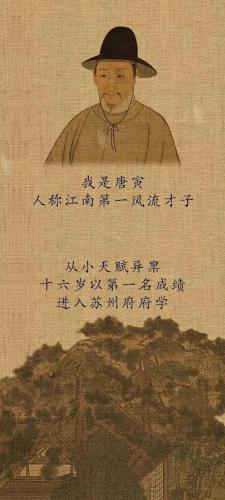 我是唐寅
人称江南第一风流才子
从小天赋异禀
十六岁以第一名成绩
进入苏州府府学